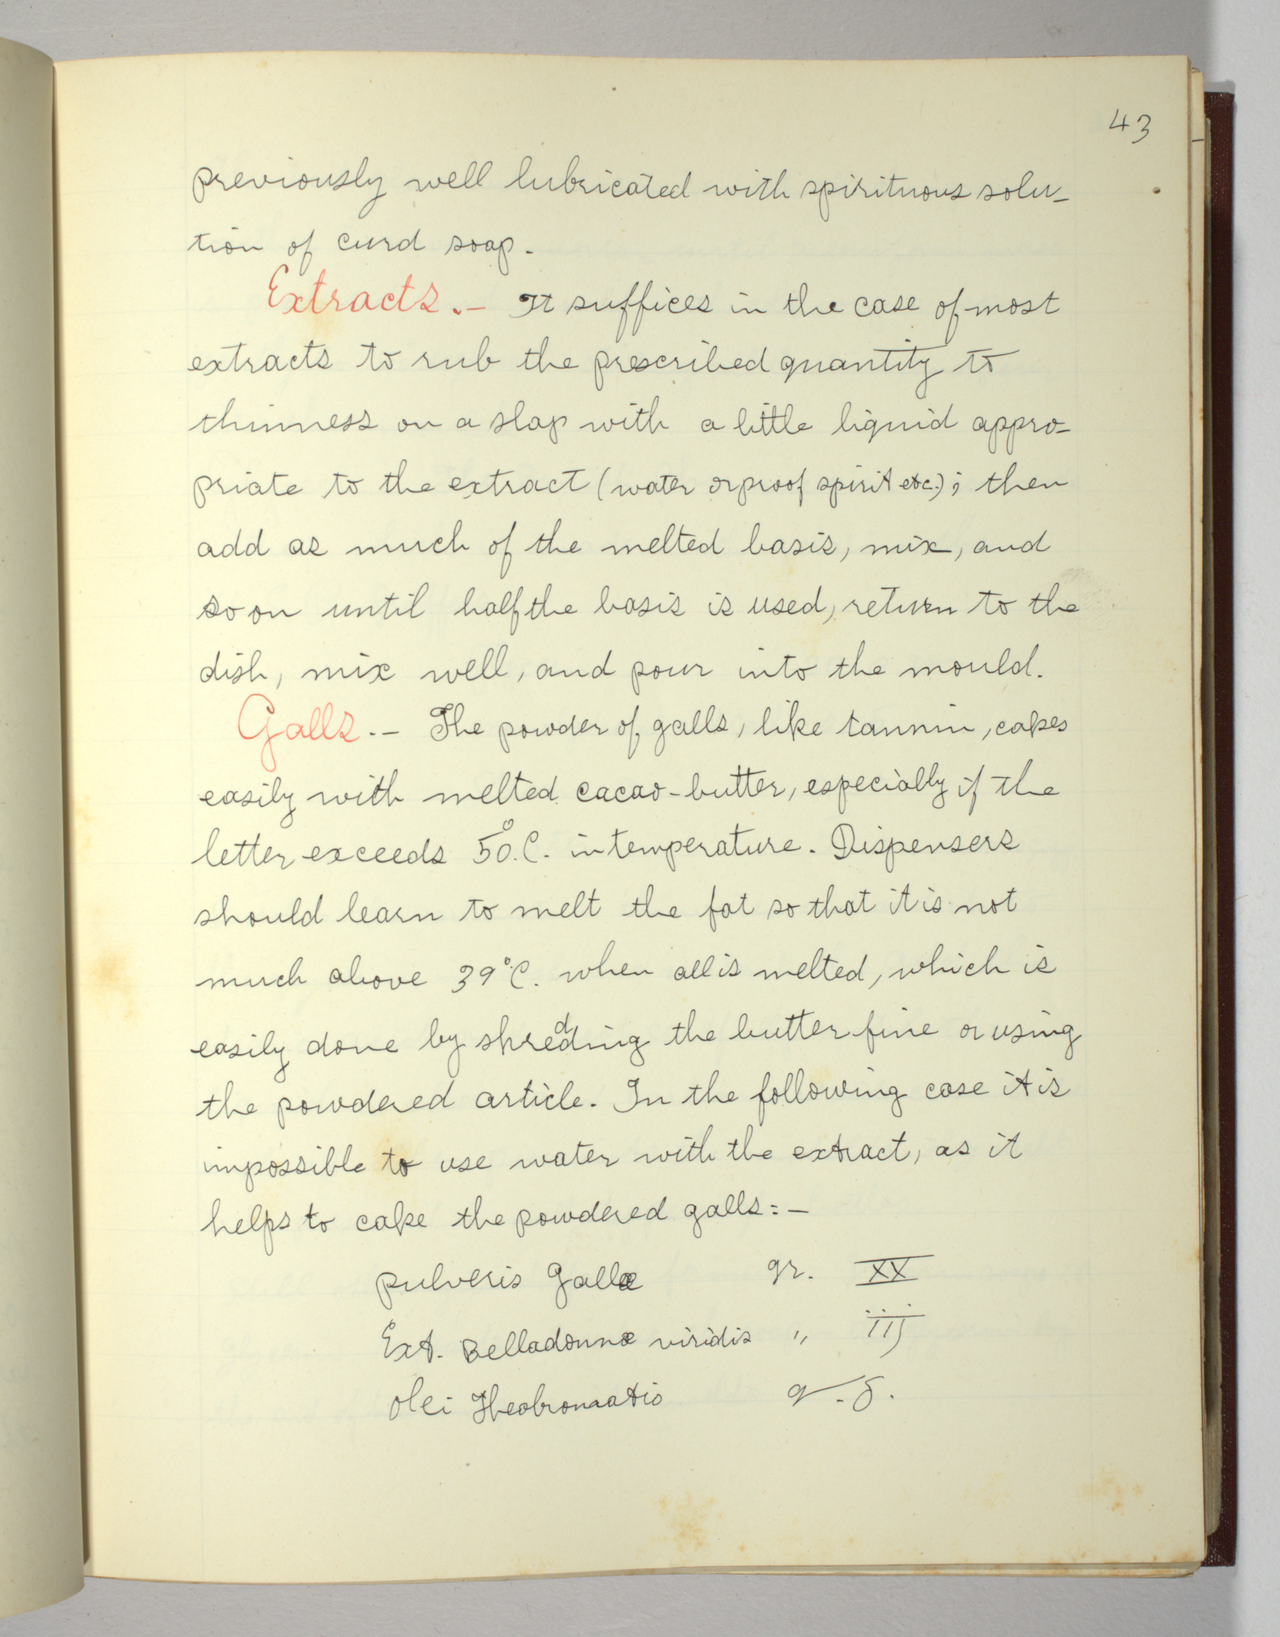 43
previously well lubricated with spirituous solu-
tion of curd soap.
Extracts.- It suffices in the case of most
extracts to rub the prescribed quantity to
thinness on a slap with a little liquid appro-
priate to the extract (water or proof spirit etc.); then
add as much of the melted basis, mix, and
so on until half the basis is used, return to the
dish, mix well, and pour into the mould.
Galls.- The powder of galls, like tannin, cakes
easily with melted cacao-butter, especially if the
letter exceeds 50°.C. in temperature. Dispensers
should learn to melt the fat so that it is not
much above 39°C. when all is melted, which is
easily done by shredding the butter fine or using
the powdered article. In the following case it is
impossible to use water with the extract, as it
helps to cake the powdered galls:-
pulveris Gallæ gr. XX
Ext. Belladonnæ viridis " iij
olei Theobromatis q.s.